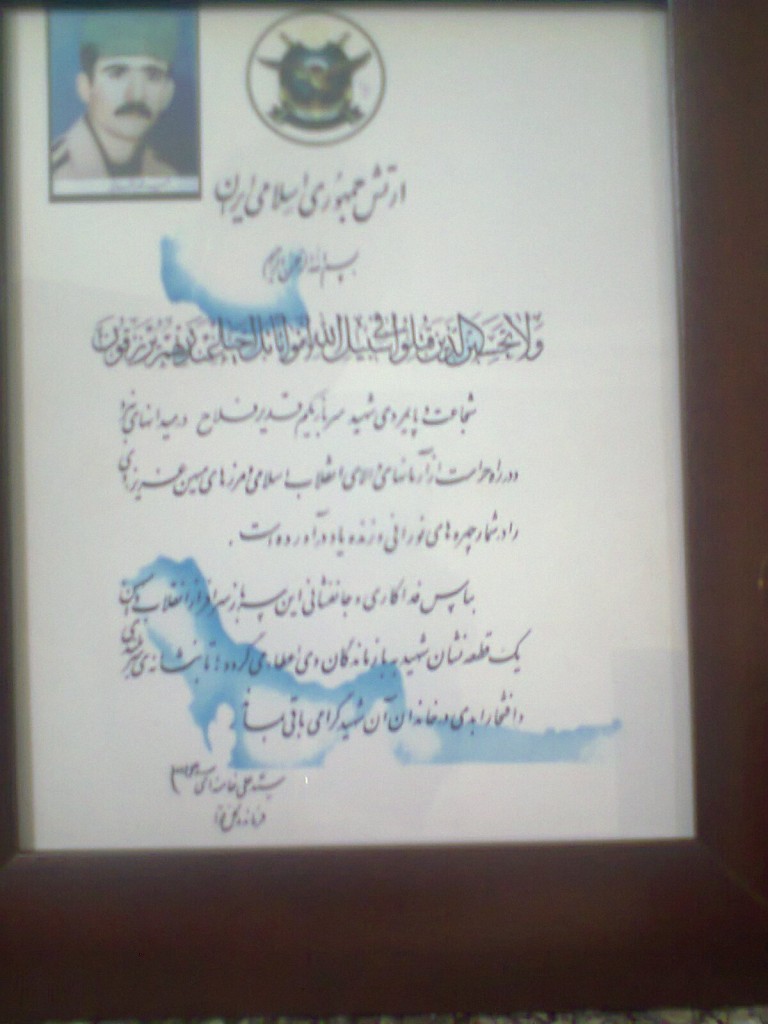 ارتش جمهوری اسلامی ایران
بسم الله الرحمن الرحیم
ولا تحسبن الذین قتلوا فی سبیل الله امواتا بل احیاء عند ربهم یرزقون
شجاعت و پایمردی شهید سرباز یکم قدیر فلاح در میدانهای نبرد
و در راه حراست از آرمانهای والای انقلاب اسلامی و مرزهای میهن عزیز وی
را در شمار چهره های نورانی و زنده یاد در آورده است .
بپاس فداکاری و جانفشانی این سرباز سرافراز انقلاب
یک قطعه نشان شهید به بازماندگان وی اعطا می گردد؛ تا نشانه ی
و افتخار ابدی در خاندان آن شهید گرامی باقی بماند
سید علی خامنه ای
فرمانده کل قوا